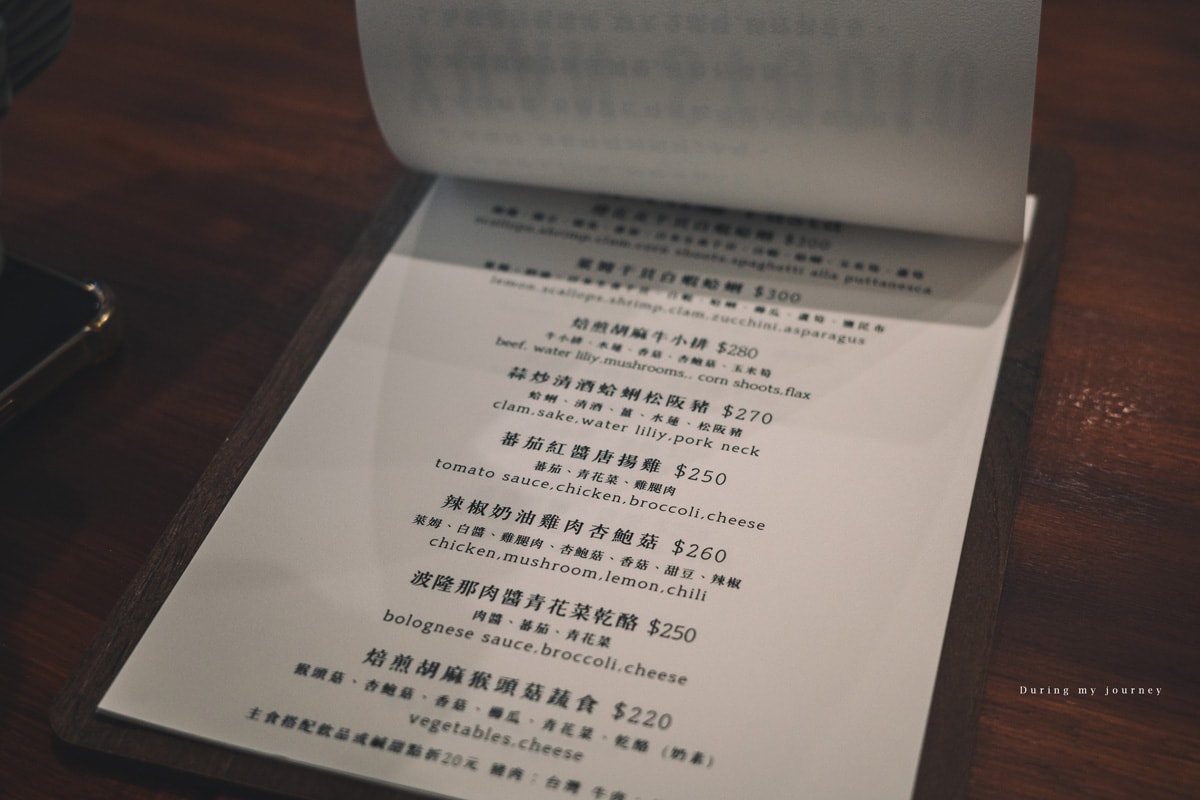 干貝白蝦蛤蜊 $300
scallops.shrimp.clam.corn shoots.spaghetti alla puttanesca
萊姆干貝白蝦蛤蜊 $300
lemon.scallops.shrimp.clam.zucchini.asparagus
焙煎胡麻牛小排 $280
牛小排、水蓮、香菇、杏鮑菇、玉米筍
beef. water liliy.mushrooms.. corn shoots.flax
蒜炒清酒蛤蜊松阪豬 $270
蛤蜊、清酒、薑、水蓮、松阪豬
clam.sake.water liliy.pork neck
蕃茄紅醬唐揚雞 $250
蕃茄、青花菜、雞腿肉
tomato sauce.chicken.broccoli.cheese
辣椒奶油雞肉杏鮑菇 $260
萊姆、白醬、雞腿肉、杏鮑菇、香菇、甜豆、辣椒
chicken.mushroom.lemon.chili
波隆那肉醬青花菜乾酪 $250
肉醬、蕃茄、青花菜
bolognese sauce.broccoli.cheese
焙煎胡麻猴頭菇蔬食 $220
猴頭菇、杏鮑菇、香菇、櫛瓜、青花菜、乾酪 (奶素)
vegetables.cheese
主食搭配飲品或鹹甜點折20元 豬肉：台灣 牛肉
During my journey